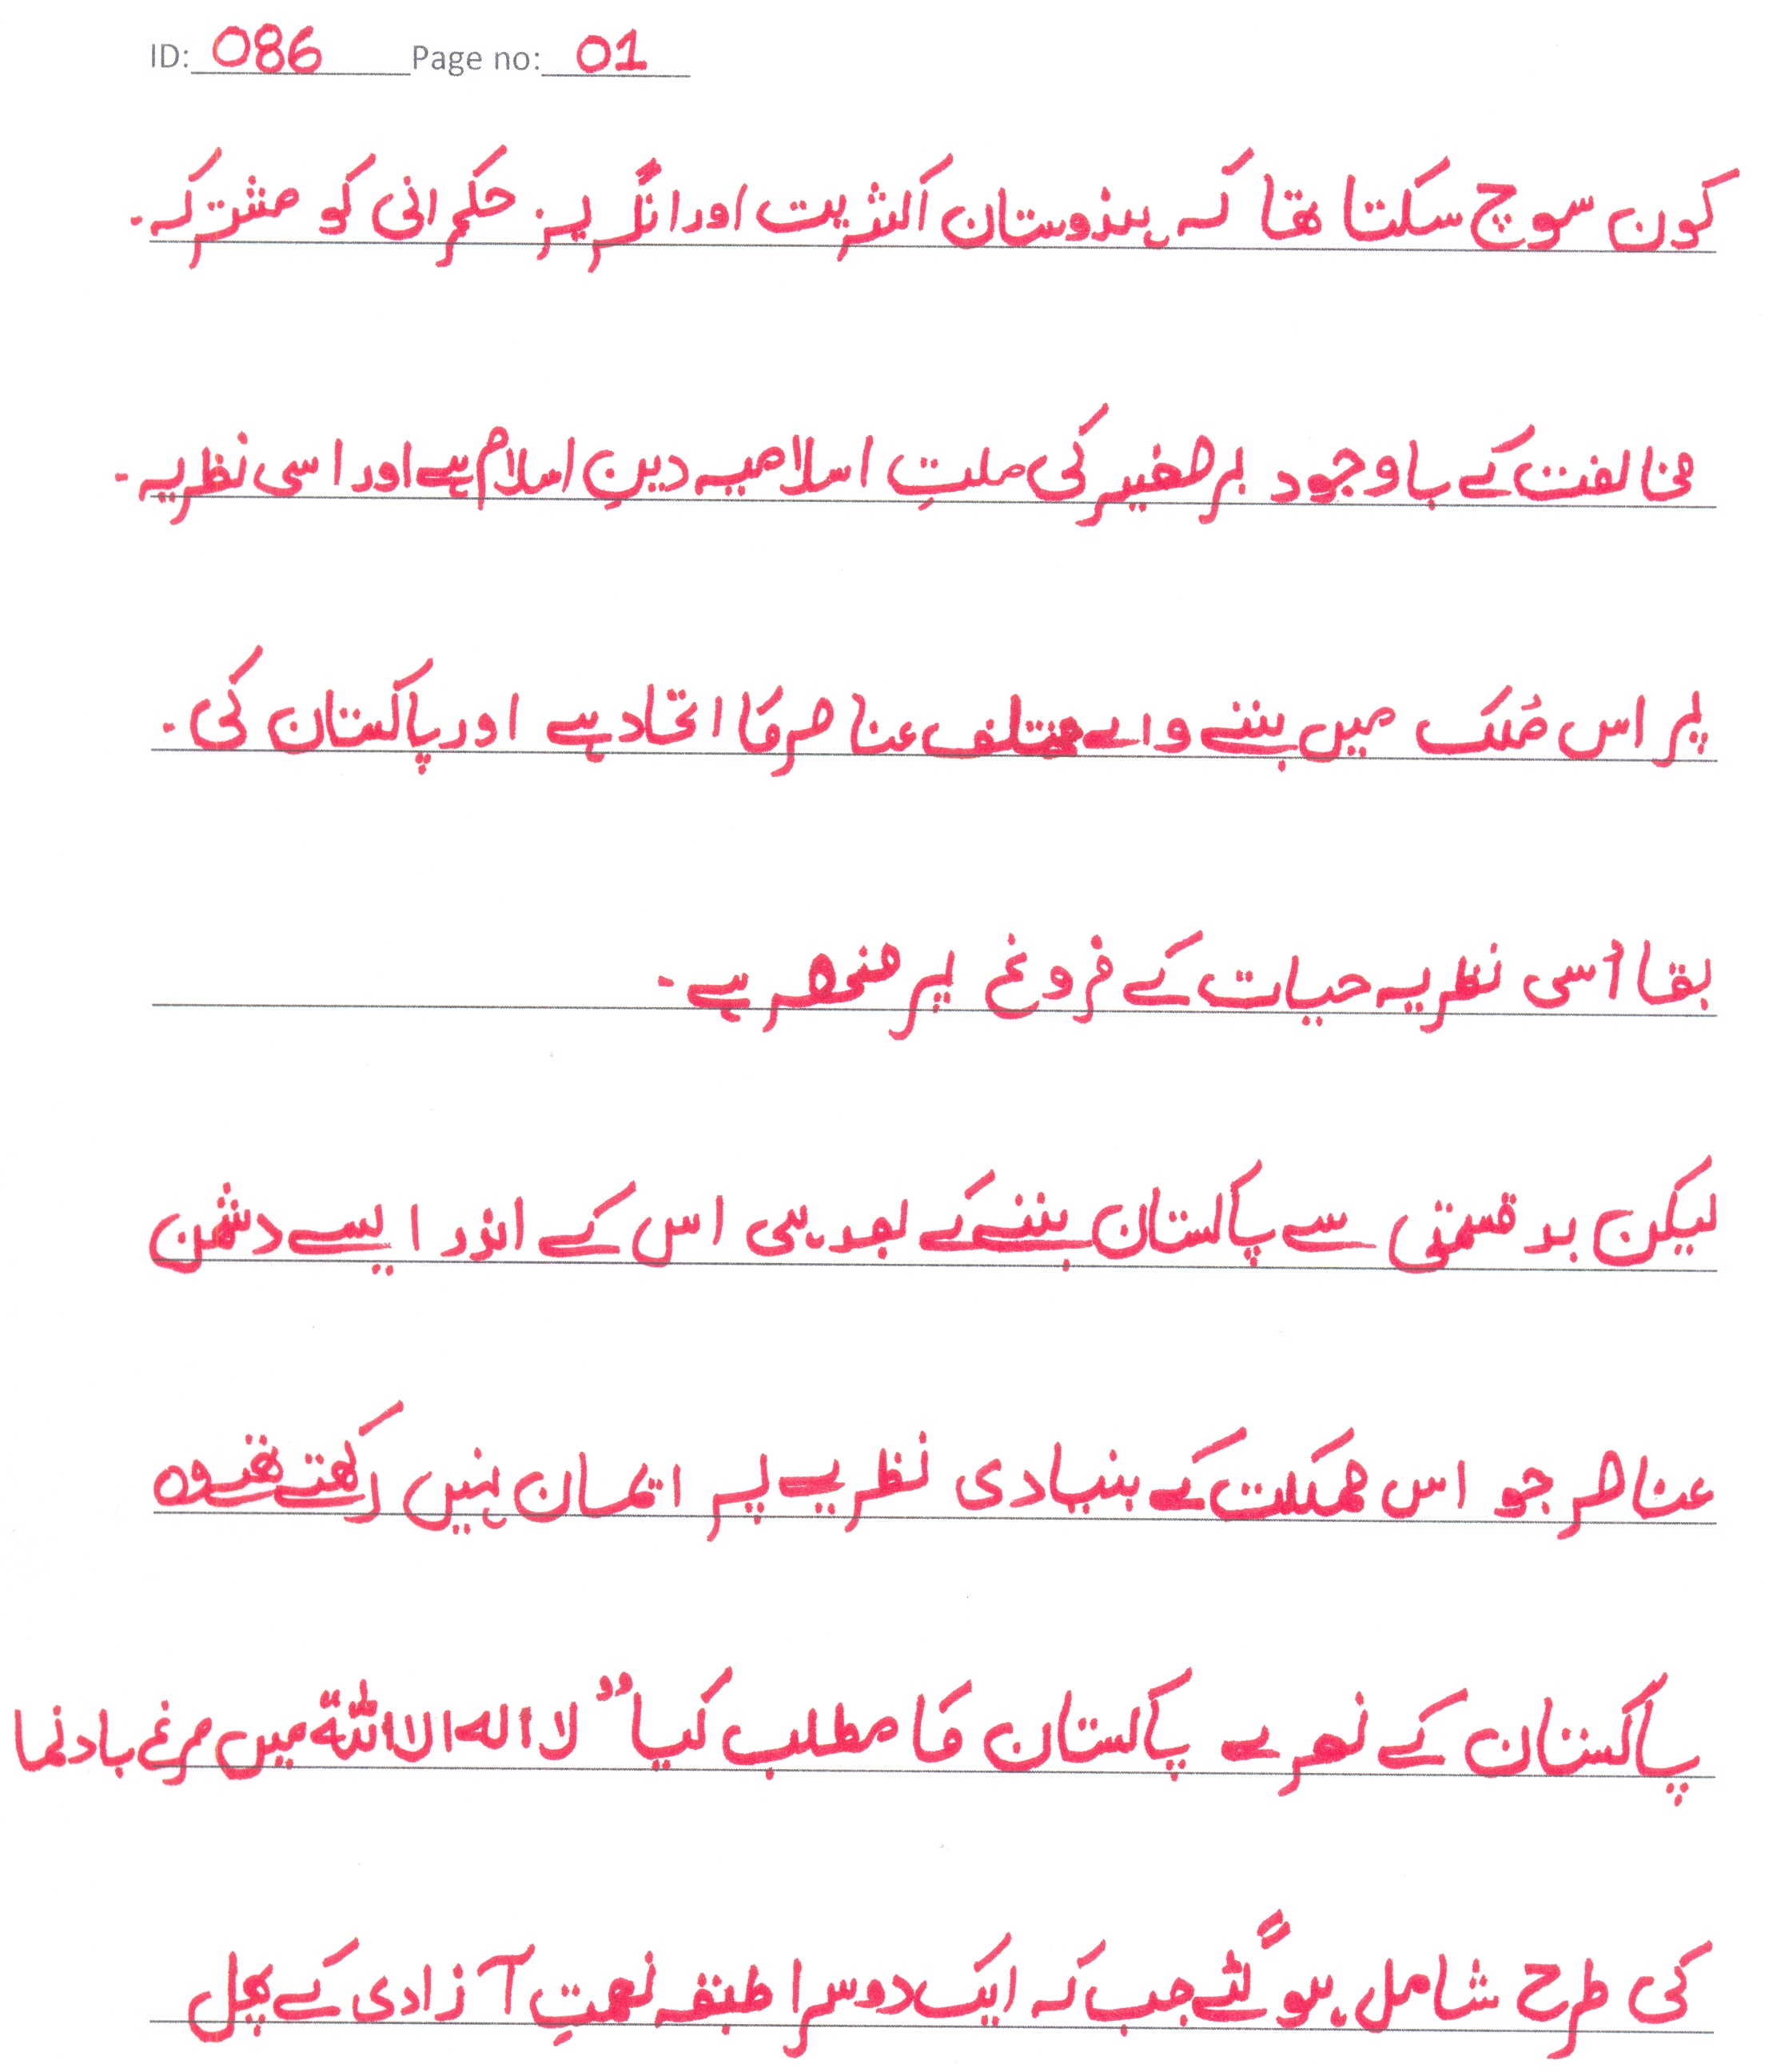 ID: 086 Page no: 01
کون سوچ سکتا تھا کہ ہندوستان اکثریت اور انگریز حکمرانی کو مشترکہ۔
مخالفت کے باوجود برصغیر کی ملتِ اسلامیہ دینِ اسلام ہے اور اسی نظریہ۔
پر اس مُلک میں بسنے والے مختلف عناصر کا اتحاد ہے اور پاکستان کی۔
بقا اُسی نظریہ حیات کے فروغ پر منحصر ہے۔
لیکن بدقسمتی سے پاکستان بننے کے بعد ہی اس کے اندر ایسے دشمن
عناصر جو اس مملکت کے بنیادی نظریے پر ایمان نہیں رکھتے تھے وہ
پاکستان کے نعرے پاکستان کا مطلب کیا" لا الہ الا اللّٰہ میں مرغ بادنما
کی طرح شامل ہو گئے جب کہ ایک دوسرا طبقہ نعمتِ آزادی کے پھل